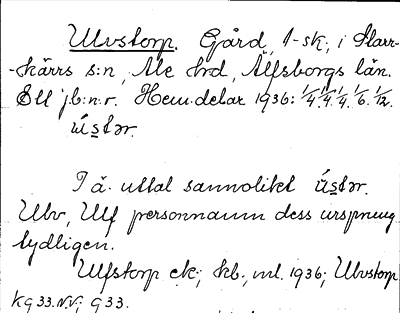 Ulvstorp. Gård, 1-sk., i Starr-
-kärrs s:n, Ale hrd, Älfsborgs län.
Ett jb:n.r. Hem.delar 1936: 1/4. 1/4. 1/4. 1/6. 1/12.
ústər.
I ä. uttal sannolikt ústər.
Ulv, Ulf personnamn dess ursprung
tydligen.
Ulfstorp ek.; kb., ml. 1936; Ulvstorp
Kg 33. N.V.; G 33.